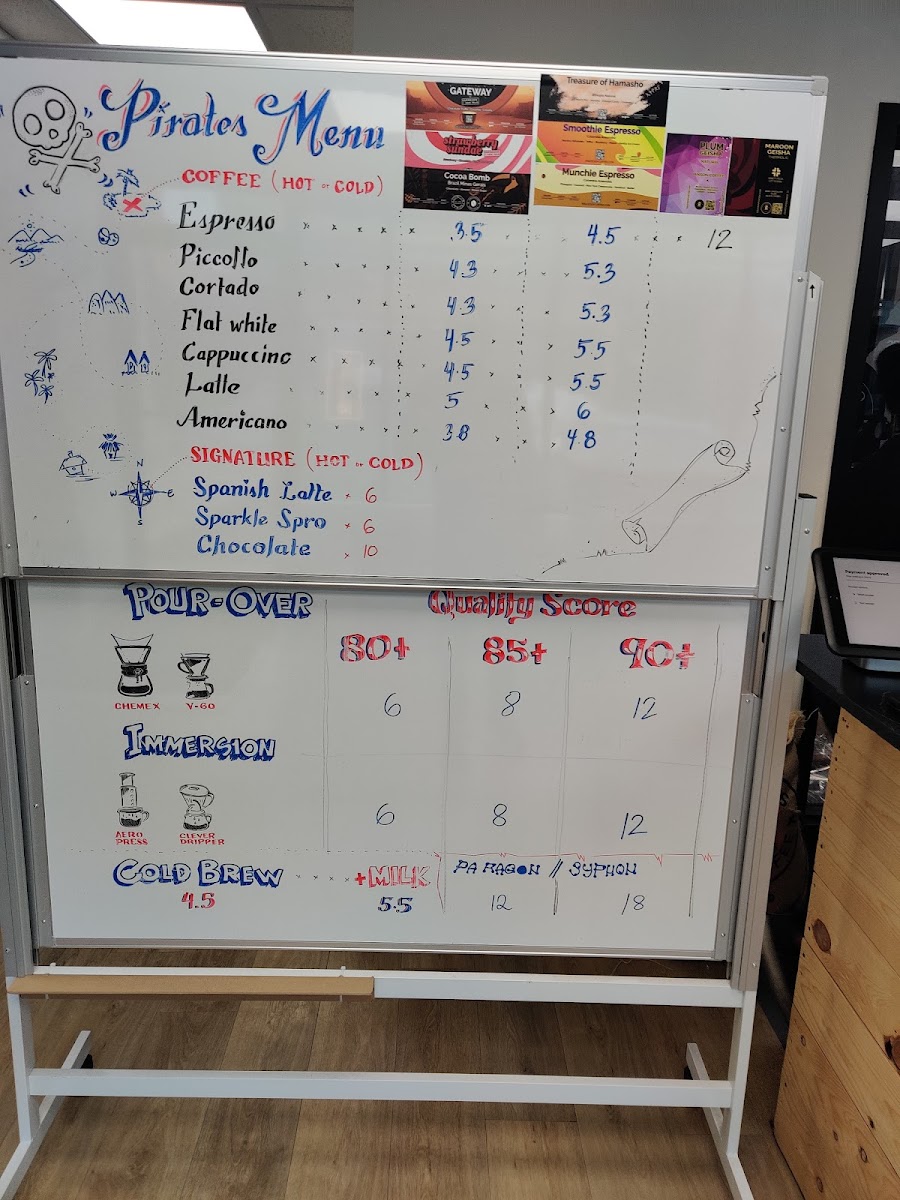 Pirates Menu
GATEWAY
strawberry sundae
Cocoa Bomb
Brazil Minas Gerais
Treasure of Hamasho
Smoothie Espresso
Munchie Espresso
PLUM GEISHA
MAROON GEISHA
COFFEE (HOT or COLD)
Espresso 3.5 4.5 12
Piccollo 4.3 5.3
Cortado 4.3 5.3
Flat white 4.5 5.5
Cappuccino 4.5 5.5
Latte 5 6
Americano 3.8 4.8
SIGNATURE (HOT or COLD)
N
W E
S
Spanish Latte 6
Sparkle Spro 6
Chocolate 10
POUR-OVER Quality Score
80+ 85+ 90+
CHEMEX V-60
6 8 12
IMMERSION
AERO PRESS CLEVER DRIPPER
6 8 12
COLD BREW +MILK PARAGON // SYPHON
4.5 5.5 12 18
Payment approved